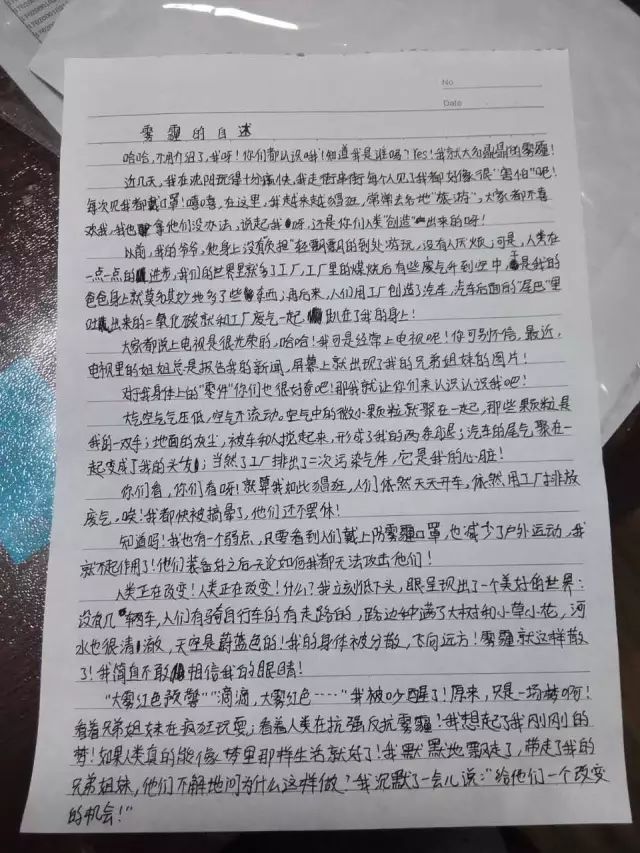 No
Date
雾霾的自述
哈哈,不用介绍了,我呀!你们都认识哦!知道我是谁吗?Yes!我就大名鼎鼎的雾霾!
近几天,我在沈阳玩得十分痛快,我走街串街每个人见了我都好像很"害怕"呢!
每次见我都戴口罩!嘻嘻,在这里,我越来越猖狂,常常去各地"旅游",大家都不喜
欢我,我也拿他们没办法,说起我呀,还是你们人类"创造"出来的呀!
以前,我的爷爷,他身上没有负担"轻飘飘的到处游玩,没有人厌烦,可是,人类在
一点一点的进步,我们的世界里就多了工厂,工厂里的煤烧后有些废气升到空中,于是我的
爸爸身上就莫名其妙地多了些东西;再后来,人们用工厂创造了汽车,汽车后面的"尾巴"里
吐出来的二氧化碳就和工厂废气一起趴在了我的身上!
大家都说上电视是很光荣的,哈哈!我可是经常上电视呢!你可别不信,最近,
电视里的姐姐总是报告我的新闻,屏幕上就出现了我的兄弟姐妹的图片!
对于我身体上的"零件"你们也很好奇吧!那我就让你们来认识认识我吧!
大气空气气压低,空气不流动。空气中的微小颗粒就聚在一起,那些颗粒是
我的一双手;地面的灰尘,被车和人搅起来,形成了我的两条腿;汽车的尾气聚在一
起变成了我的头发;当然了工厂排出了二次污染气体,它是我的心脏!
你们看,你们看呀!就算我如此猖狂,人们依然天天开车,依然用工厂排放
废气,唉!我都快被搞晕了,他们还不罢休!
知道吗!我也有个弱点,只要看到人们戴上防雾霾口罩,也减少了户外运动,我
就不起作用了!他们装备好之后无论如何我都无法攻击他们!
人类正在改变!人类正在改变!什么?我立刻低下头,眼呈现出了一个美好的世界:
没有几辆车,人们有骑自行车的有走路的,路边种满了大树和小草小花,河
水也很清澈,天空是蔚蓝色的!我的身体被分散,飞向远方!雾霾就这样散
了!我简直不敢相信我的眼睛!
"大雾红色预警""滴滴,大雾红色……"我被吵醒了!原来,只是一场梦啊!
看着兄弟姐妹在疯狂玩耍;看着人类在抗强反抗雾霾!我想起了我刚刚的
梦!如果人类真的能像梦里那样生活就好了!我默默地飘走了,带走了我的
兄弟姐妹,他们不解地问为什么这样做?我沉默了一会儿说:"给他们一个改变
的机会!"